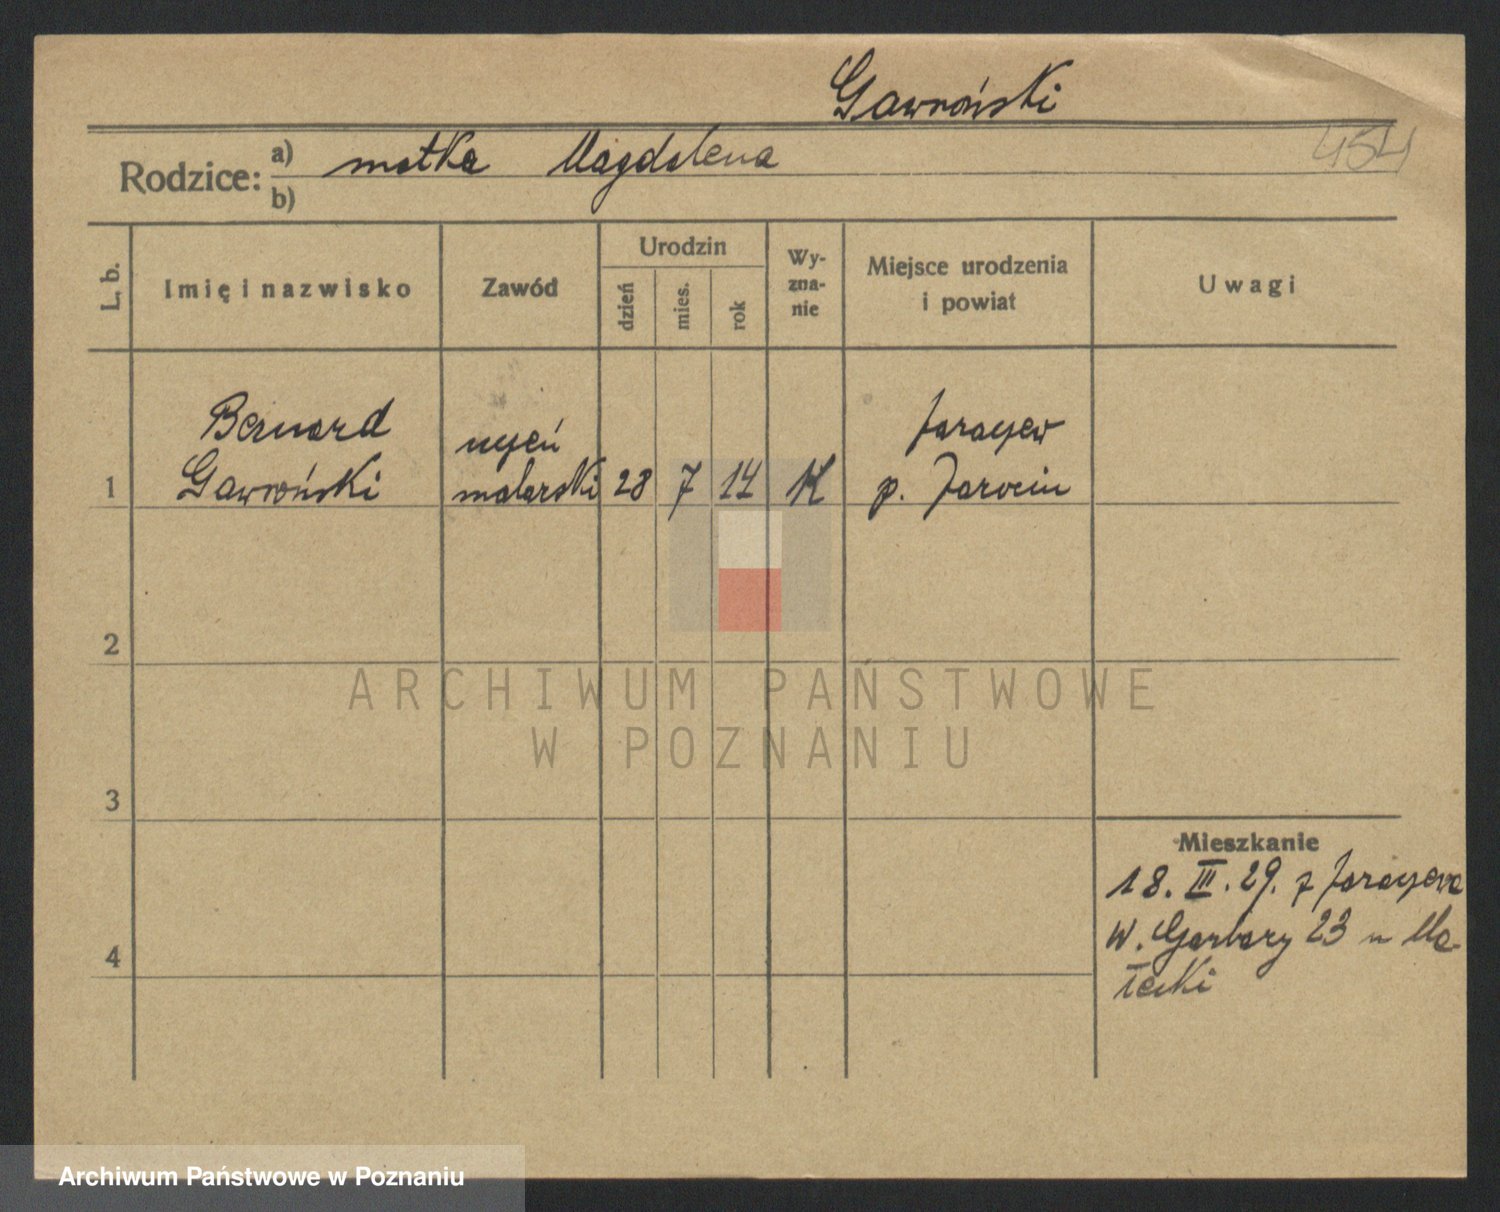 Gawroński
454
Rodzice:
a) matka Magdalena
b)
L. b.
Imię i nazwisko
Zawód
Urodzin
dzień
mies.
rok
Wy-
zna-
nie
Miejsce urodzenia
i powiat
Uwagi
1
Bernard
Gawroński
uczeń
malarski
28
7
14
K
Jaraczew
p. Jarocin
2
3
4
Mieszkanie
18. III. 29. z Jaraczewa
W. Garbary 23 u Ma-
łecki
ARCHIWUM PAŃSTWOWE
W POZNANIU
Archiwum Państwowe w Poznaniu